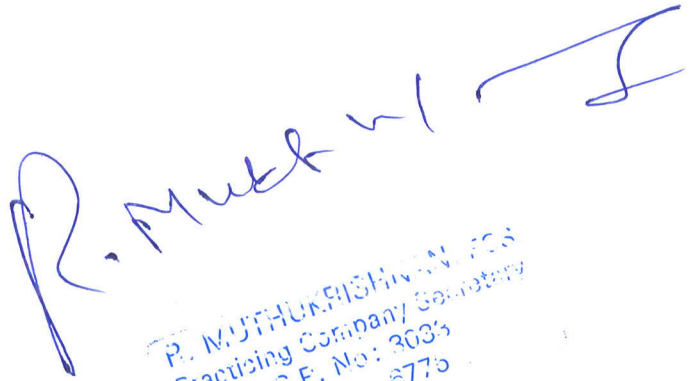 R. Muthu
R. MUTHUKRISHNAN. FCS
Practicing Company Secretary
C.P. No: 3033
6775